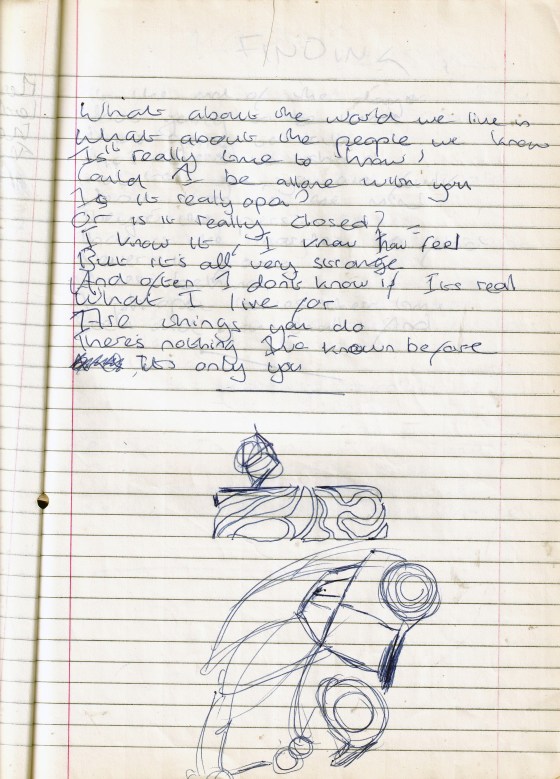 What about the world we live in
What about the people we know
Is it really time to know?
Could I be allone with you
Is it really open?
Or is it really closed?
I know it, I know how feel
But it's all very strange
And often I dont know if Its real
What I live for
The things you do
There's nothing I've known before
Its only you